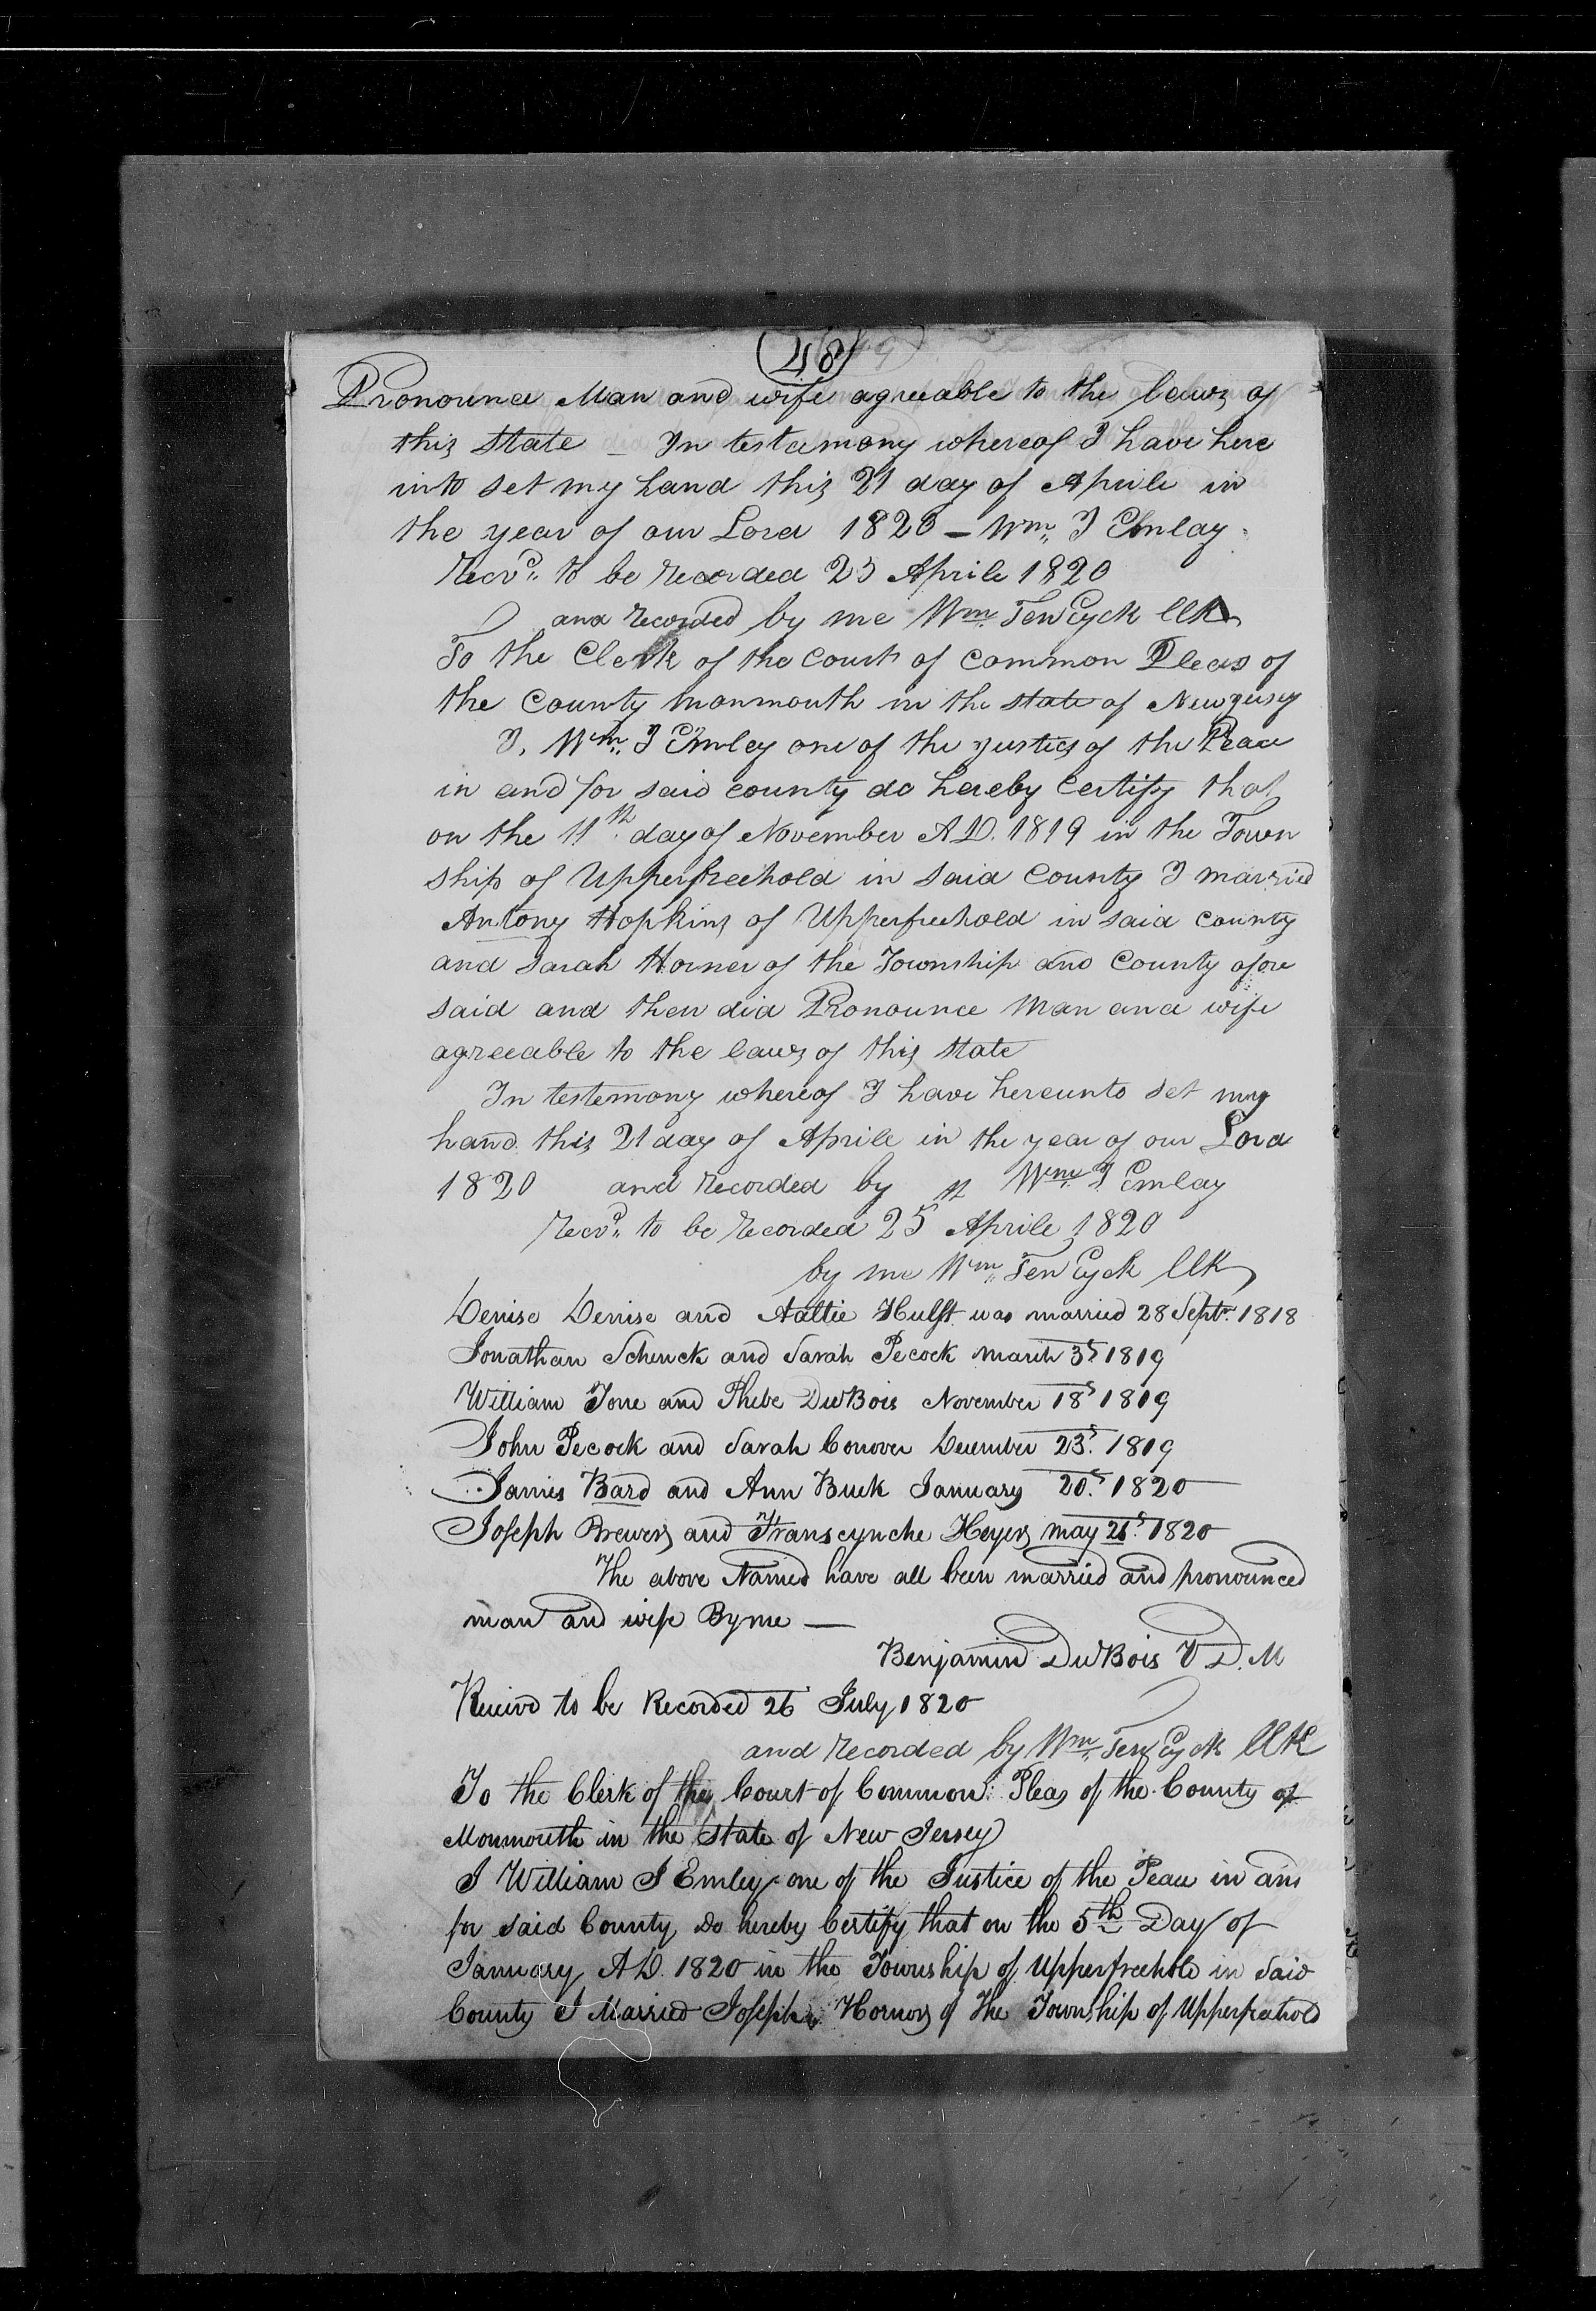 (48)
Pronounce Man and wife agreeable to the laws of
this State _ In testamony whereof I have here
into set my hand this 21 day of Aprile in
the year of our Lord 1820 - Wm. I Emlay
Recvd. to be recorded 25 Aprile 1820
and recorded by me Wm. TenEyck Clk
To the Clerk of the Court of Common Pleas of
the County Monmouth in the state of New jersey
I, Wm. I Emley one of the justices of the Peace
in and for said county do hereby Certify that
on the 11th day of November A.D. 1819 in the Town
ship of Upperfreehold in said County I married
Antony Hopkins of Upperfreehold in said county
and Sarah Horner of the Township and County afore
said and then did Pronounce Man and wife
agreeable to the laws of this state
In testemony whereof I have hereunto set my
hand this 21 day of Aprile in the year of our Lord
1820 and recorded by Wm. I Emlay
Recvd. to be recorded 25th Aprile 1820
by me Wm. TenEyck Clk
Denise Denise and Aaltie Hulst was married 28 Septr. 1818
Jonathan Schenck and Sarah Pecock march 3 1819
William Tone and Phebe DuBois November 18 1819
John Pecock and Sarah Conover December 23. 1819
James Bard and Ann Buck January 20. 1820
Joseph Brewers and Franscynche Heyers may 21. 1820
The above Named have all been married and pronounced
man and wife By me —
Benjamin DuBois V. D. M
Receivd to be Recorded 26 July 1820
and recorded by Wm. TenEyck Clk
To the Clerk of the Court of Common Pleas of the County of
Monmouth in the State of New Jersey
I William I Emley one of the Justice of the Peace in and
for said County, do hereby Certify that on the 5th Day of
January A.D. 1820 in the Township of Upperfreehold in Said
County I Married Joseph Hornor of The Township of Upperfreehold